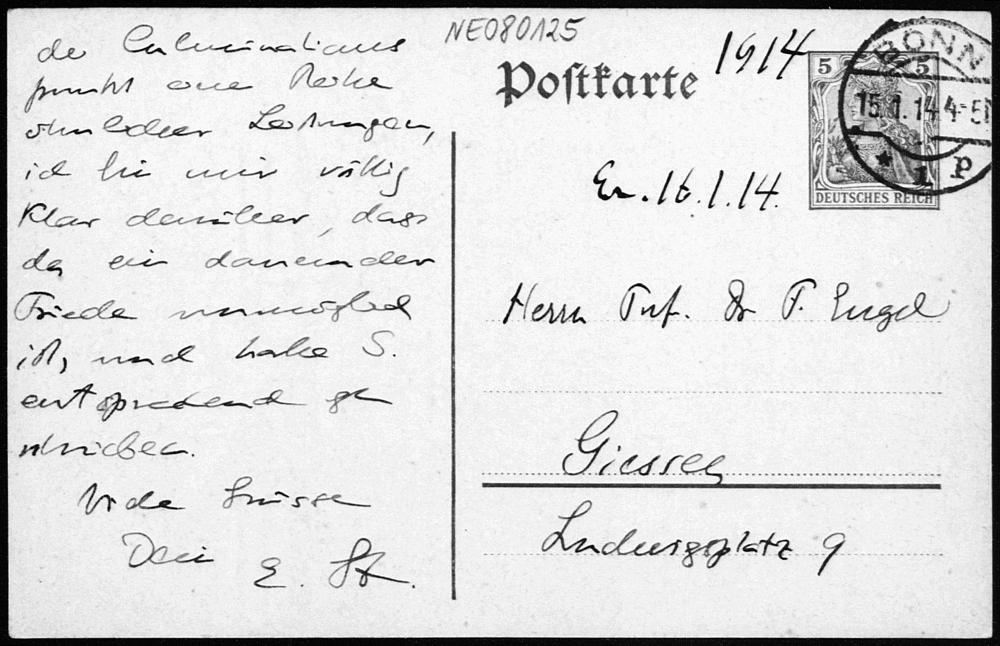 NE080125
1914
Postkarte
5 5
DEUTSCHES REICH
BONN
15.1.14.4-5N
* 1 p
Er. 16.1.14.
der Culminations
punkt einer Reihe
ähnlicher Leistungen,
ich bin mir völlig
klar darüber, dass
da ein dauernder
Friede unmöglich
ist, und habe S.
entsprechend ge
schrieben.
Viele Grüsse
Dein
E. St.
Herrn Prof. Dr F. Engel
Giessen
Ludwigsplatz 9